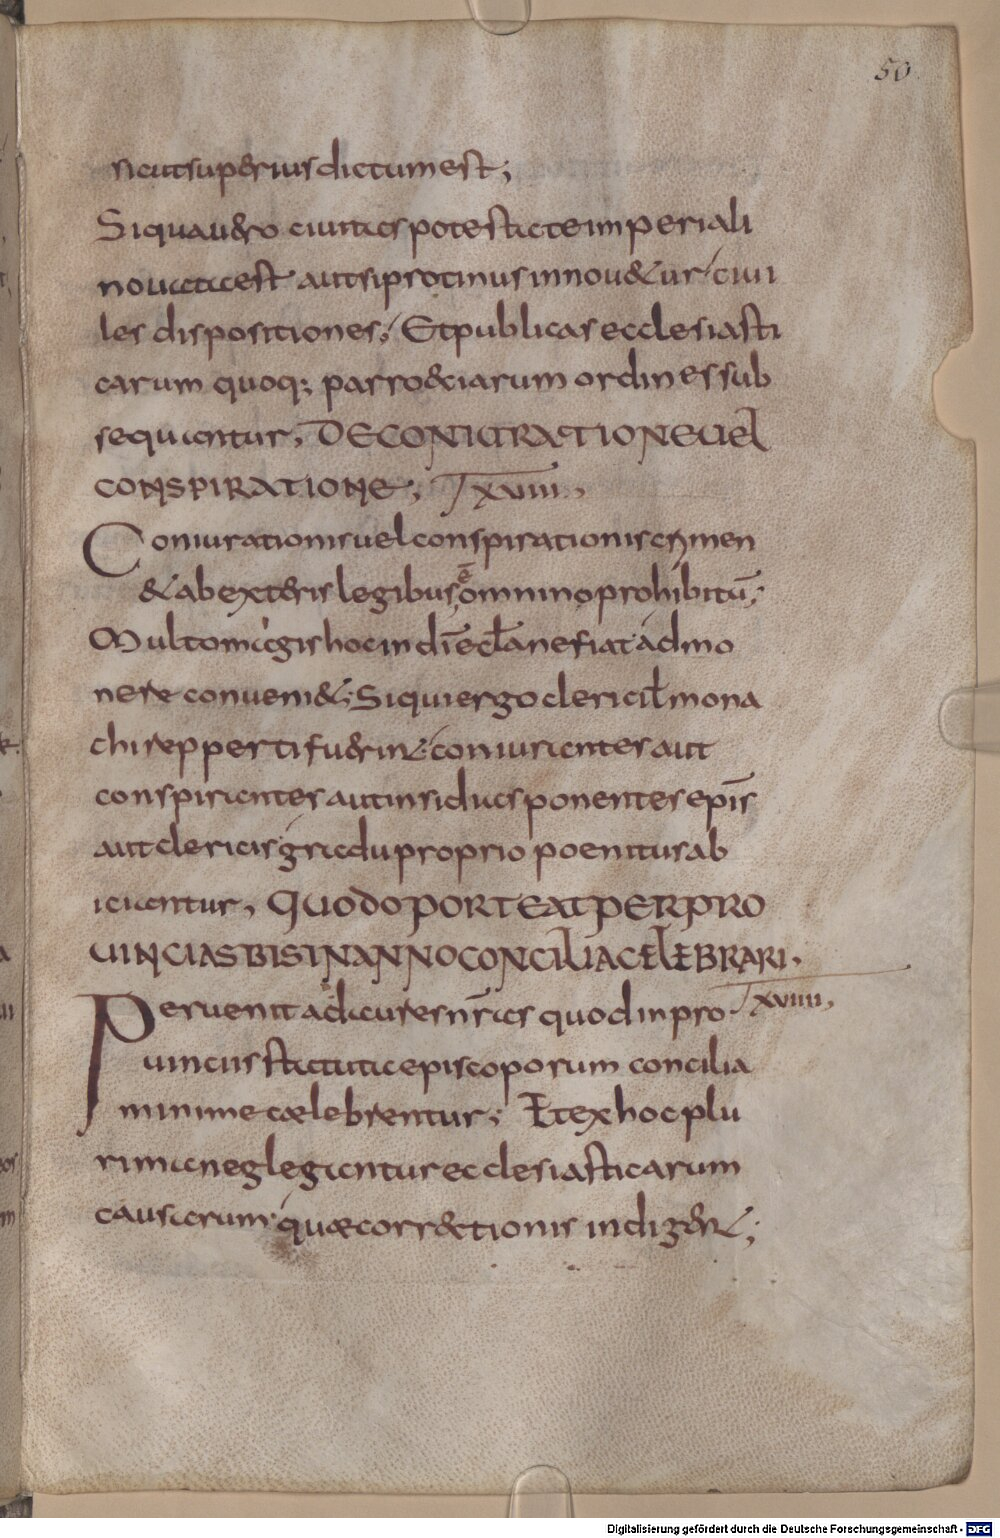 50
sicut superius dictum est;
Si qua uero ciuitas potestate imperiali
nouata est aut si protinus innouetur ciui
les dispositiones; Et publicas ecclesiasti
carum quoq; parroeciarum ordines sub
sequantur, DE CONIURATIONE UEL
CONSPIRATIONE; Txviii.,
Coniurationis uel conspirationis crimen
& ab exteris legibus ē omnino prohibitū;
Multo magis hoc in dī eccła ne fiat admo
nere conueni&; Si qui ergo clerici ł mona
chi repperti fuerint coniurantes aut
conspirantes aut insidias ponentes epīs
aut clericis gradu proprio poenitus ab
iciantur, QUOD OPORTEAT PER PRO
UINCIAS BIS IN ANNO CONCILIA CELEBRARI.
Peruenit ad aures nr̄as quod in pro Txviiii,
uinciis statuta episcoporum concilia
minime caelebrentur; Et ex hoc plu
rima neglegantur ecclesiasticarum
causarum quae corr&ctionis indigent;
Digitalisierung gefördert durch die Deutsche Forschungsgemeinschaft - DFG